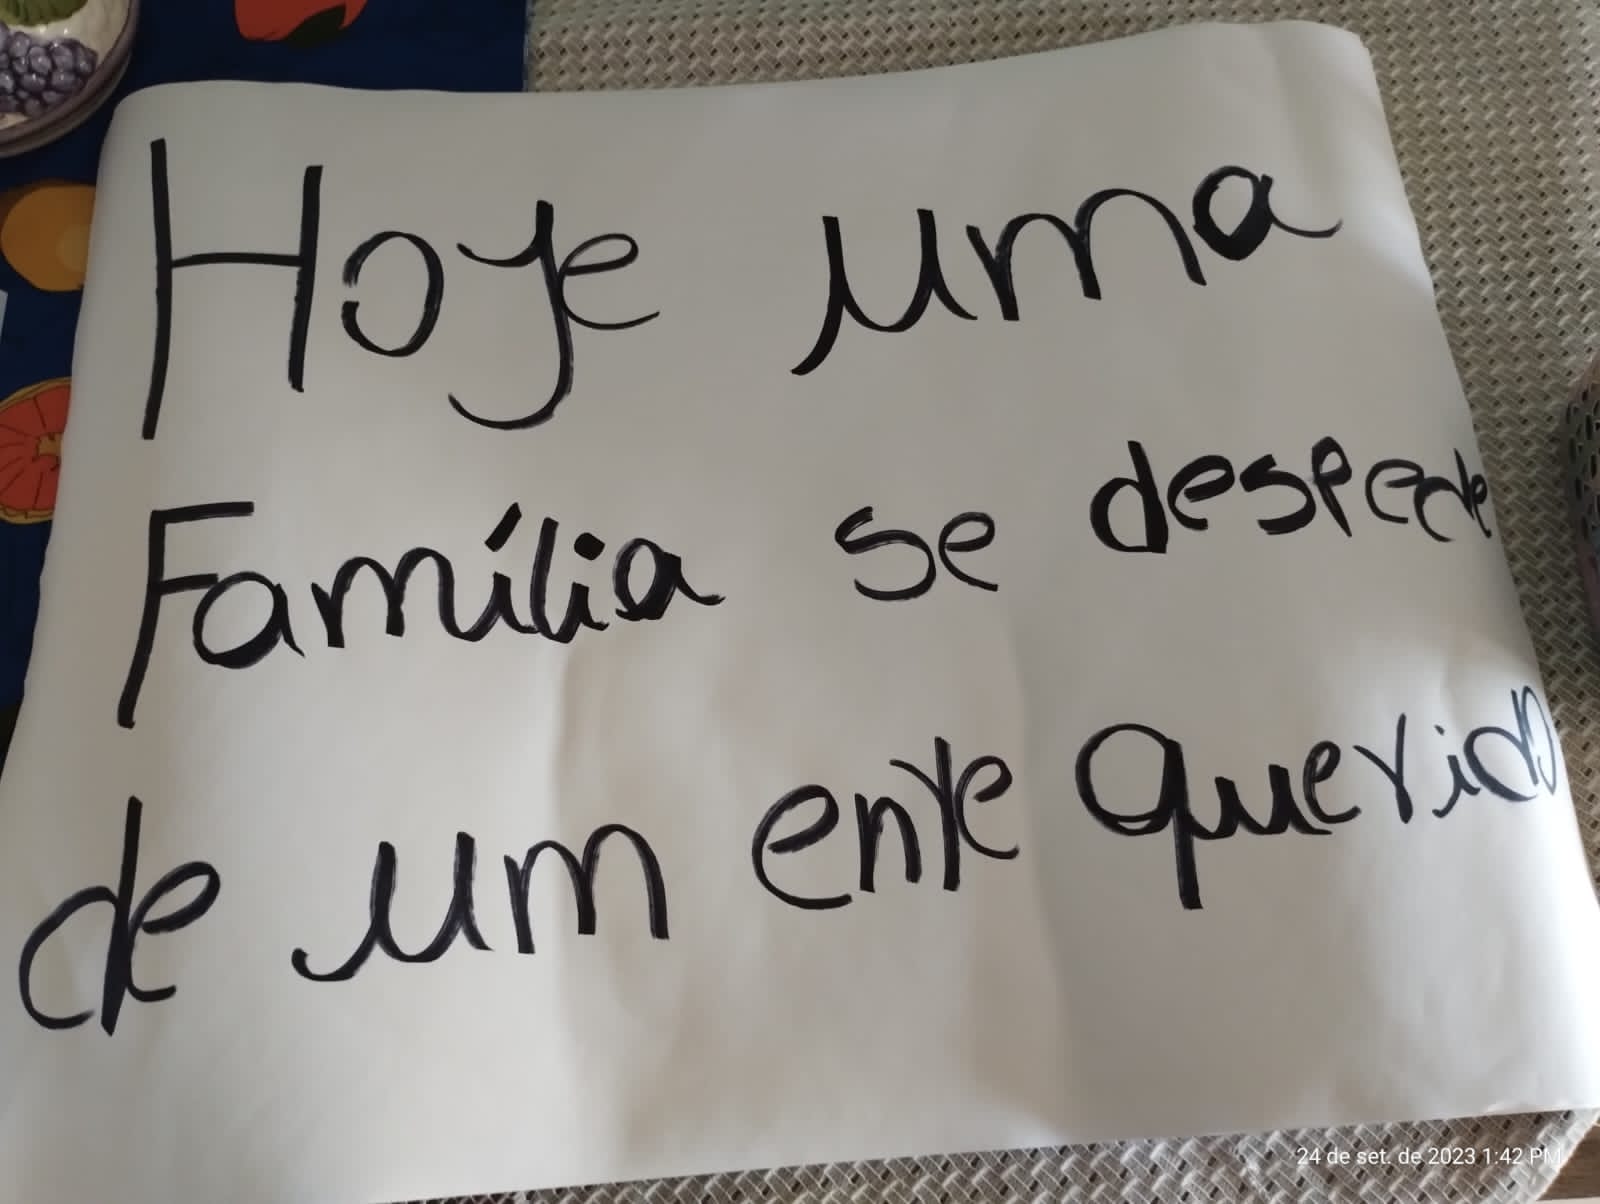 Hoje uma
Família se despede
de um ente querido
24 de set. de 2023 1:42 PM